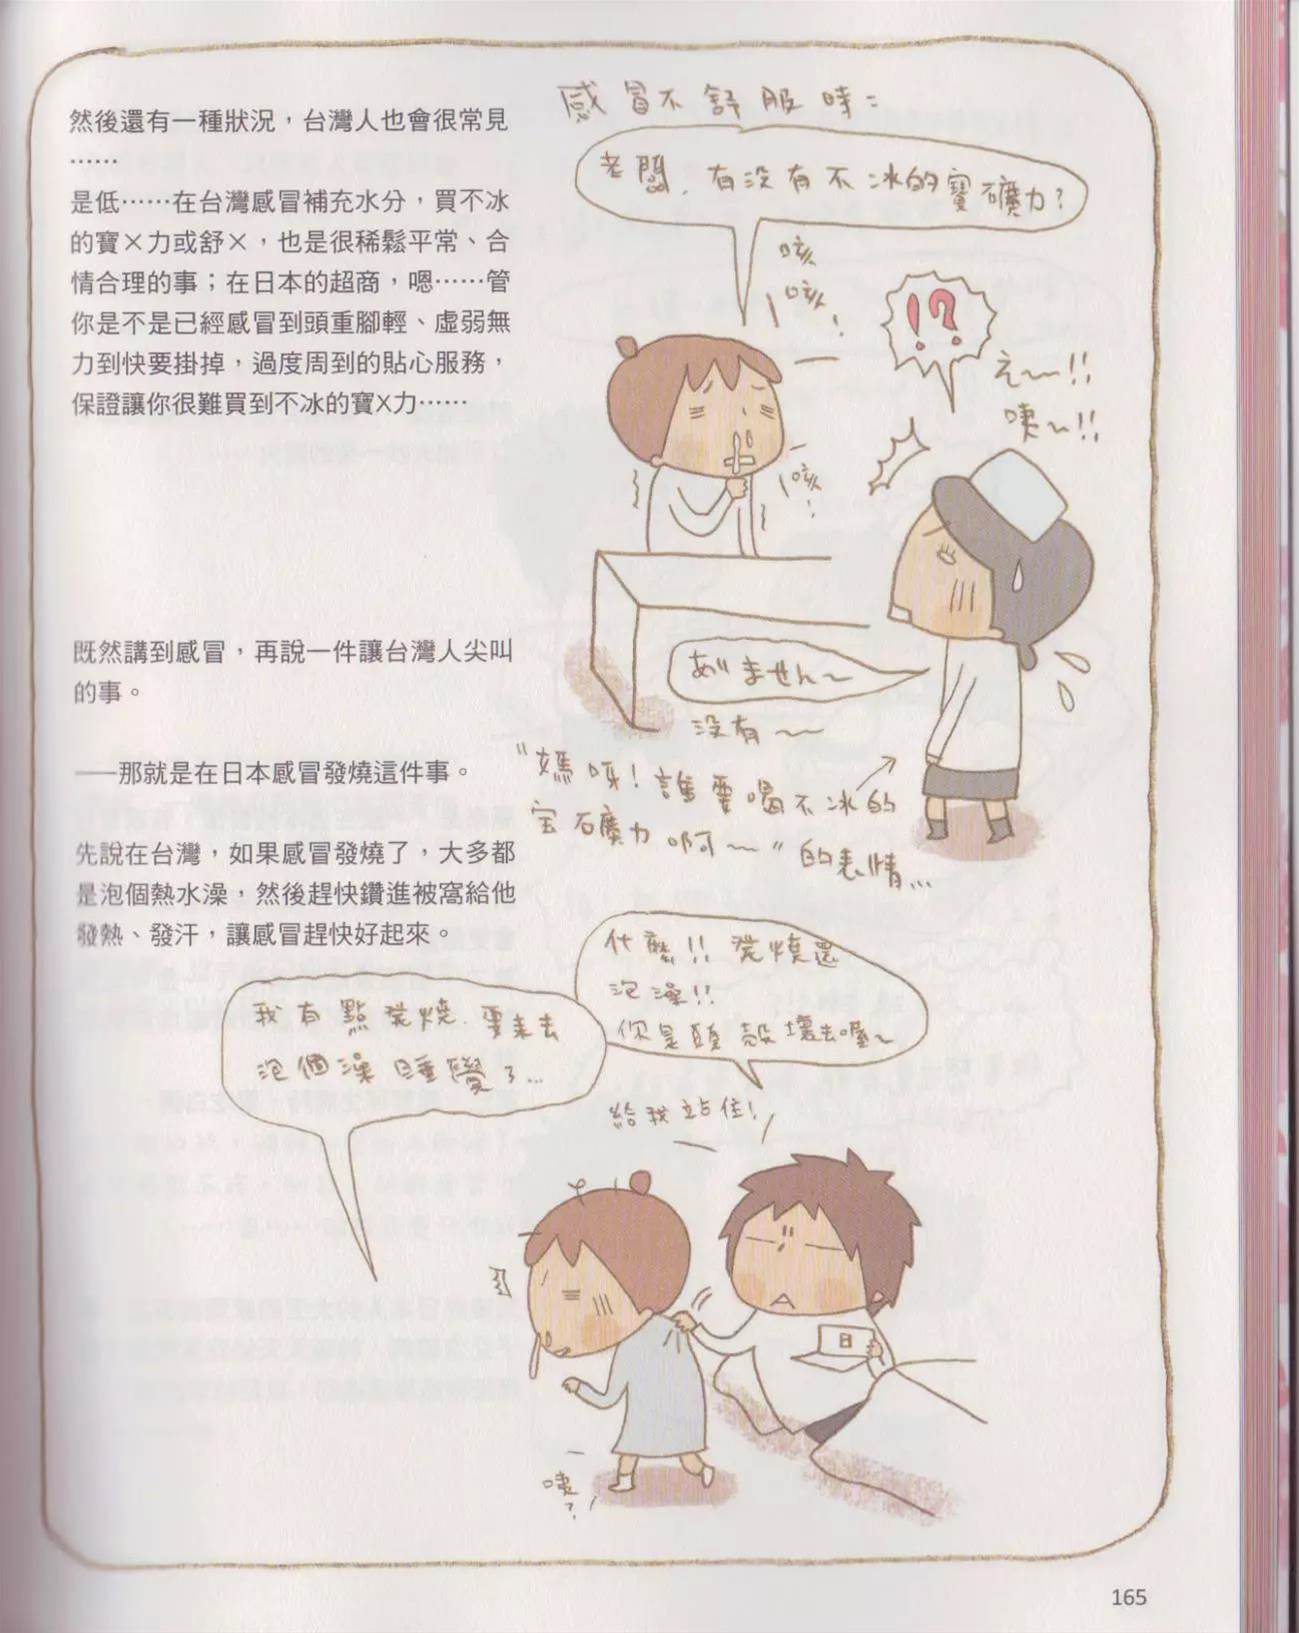 然後還有一種狀況，台灣人也會很常見
……
是低……在台灣感冒補充水分，買不冰
的寶×力或舒×，也是很稀鬆平常、合
情合理的事；在日本的超商，嗯……管
你是不是已經感冒到頭重腳輕、虛弱無
力到快要掛掉，過度周到的貼心服務，
保證讓你很難買到不冰的寶X力……
感冒不舒服時：
老闆，有沒有不冰的寶礦力？
咳
咳！
!?
え～～!!
咦～!!
咳！
ありません～
沒有～～
"媽呀！誰要喝不冰的
宝礦力啊～～"的表情...
既然講到感冒，再說一件讓台灣人尖叫
的事。
——那就是在日本感冒發燒這件事。
先說在台灣，如果感冒發燒了，大多都
是泡個熱水澡，然後趕快鑽進被窩給他
發熱、發汗，讓感冒趕快好起來。
我有點発燒，要來去
泡個澡睡覺了...
什麼!!発燒還
泡澡!!
你是頭殼壞去喔～
給我站住！
日
咦？
165